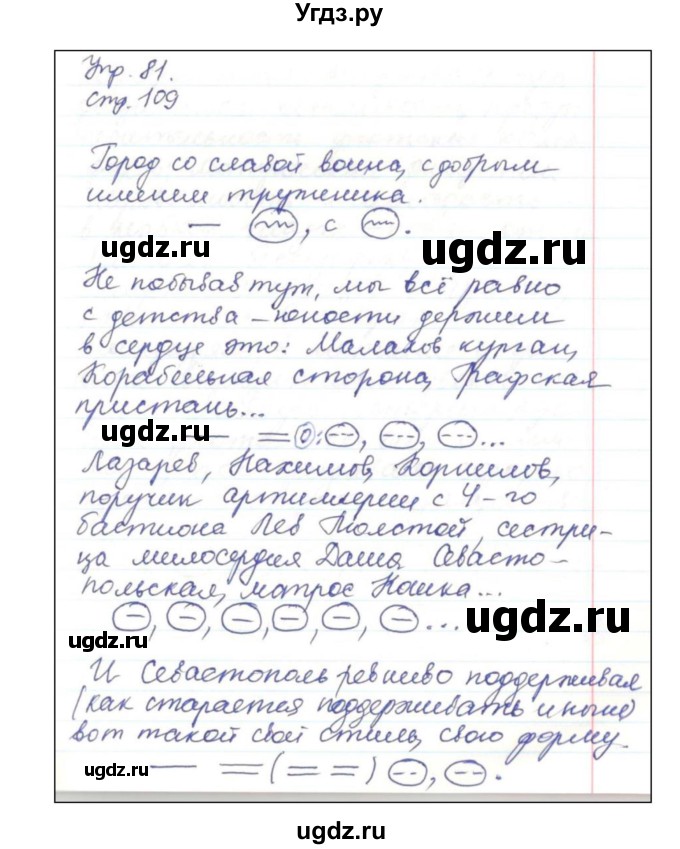 Угдз.ру
Упр. 81.
Стр. 109
Город со славой воина, с добрым
именем труженика.
— , с .
ugdz.ru ugdz.ru
Не побывав тут, мы всё равно
с детства – юности держим
в сердце это: Малахов курган,
Корабельная сторона, Графская
пристань...
ugdz.ru ugdz.ru
— = О: , , ...
Лазарев, Нахимов, Корнилов,
поручик артиллерии с 4-го
бастиона Лев Толстой, сестри-
ца милосердия Даша Севасто-
польская, матрос Кошка...
, , , , , ...
ugdz.ru ugdz.ru
И Севастополь ревниво поддерживал
(как старается поддерживать и ныне)
вот такой свой стиль, свою форму
ugdz.ru
— = (= =) , .
ugdz.ru